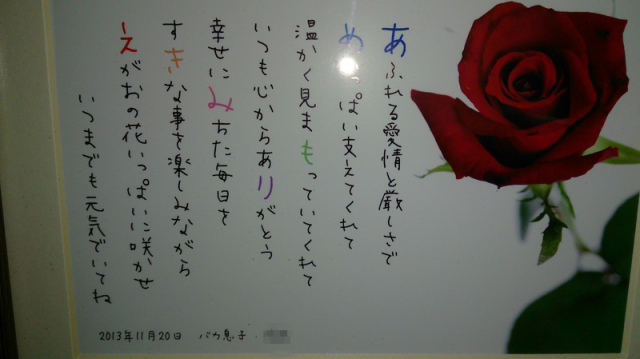 あふれる愛情と厳しさで
めいっぱい支えてくれて
温かく見まもっていてくれて
いつも心からありがとう
幸せにみちた毎日を
すきな事を楽しみながら
えがおの花いっぱいに咲かせ
いつまでも元気でいてね
2013年11月20日 バカ息子